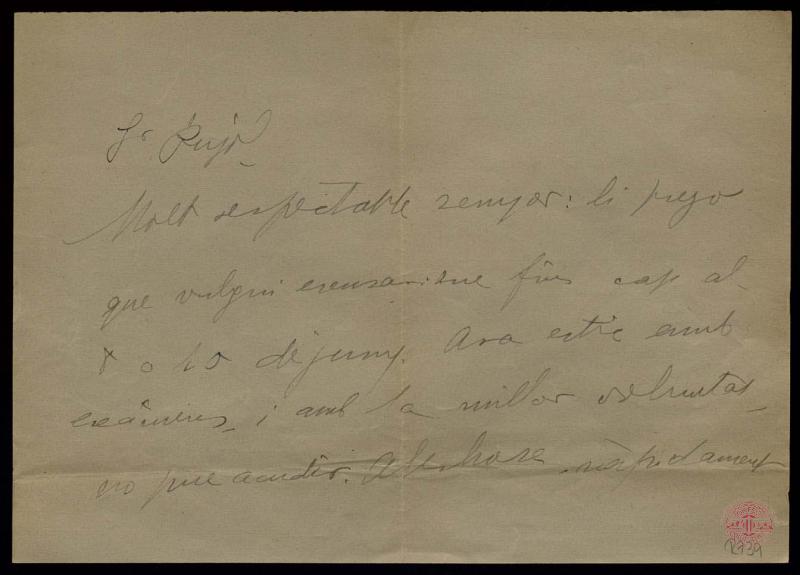 Sr. Pujol
Molt respectable senyor: li prego
que vulgui excusar-me fins cap al
8 o 10 de juny. Ara estic amb
exàmens, i amb la millor voluntat,
no puc acudir. ràpidament
R739